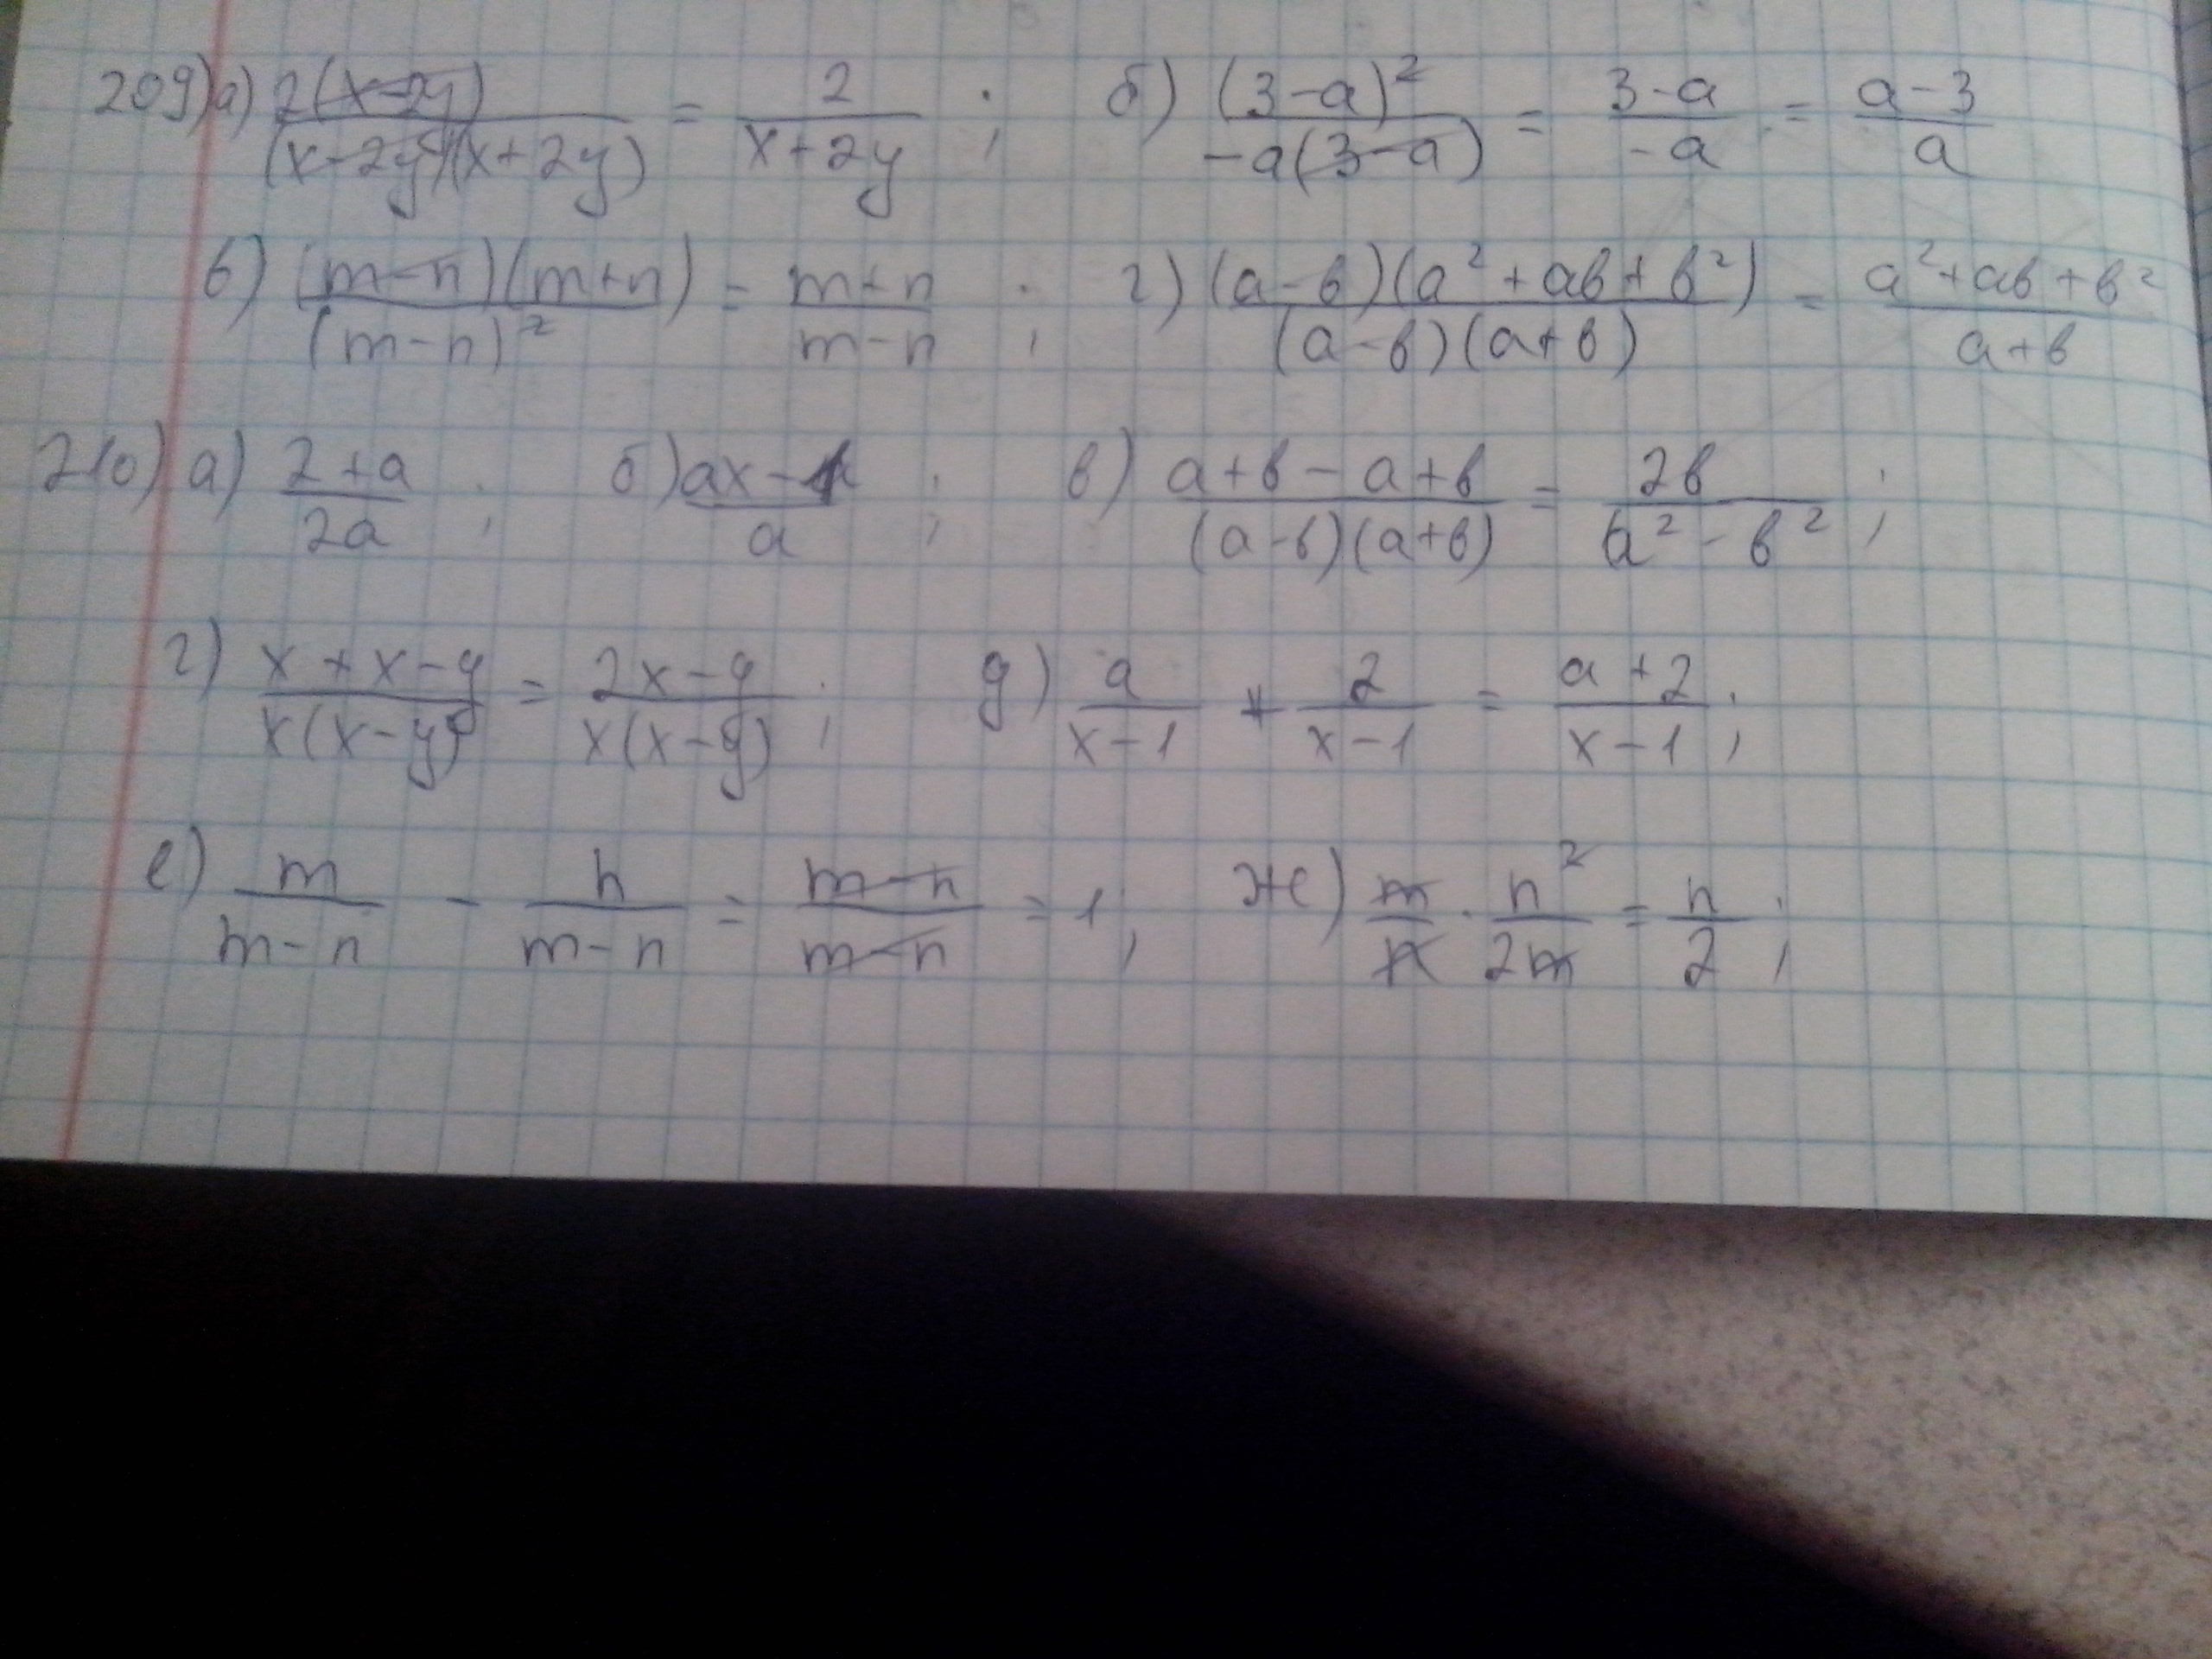 209) а) 2(x-2y)/(x-2y)(x+2y) = 2/(x+2y); б) (3-a)²/-a(3-a) = (3-a)/-a = (a-3)/a
в) (m-n)(m+n)/(m-n)² = (m+n)/(m-n); г) (a-b)(a²+ab+b²)/(a-b)(a+b) = (a²+ab+b²)/(a+b)
210) а) (2+a)/2a; б) (ax-1)/a; в) (a+b-a+b)/(a-b)(a+b) = 2b/(a²-b²);
г) (x+x-y)/x(x-y) = (2x-y)/x(x-y); д) a/(x-1) + 2/(x-1) = (a+2)/(x-1);
е) m/(m-n) - n/(m-n) = (m-n)/(m-n) = 1; ж) m/n · n²/2m = n/2;